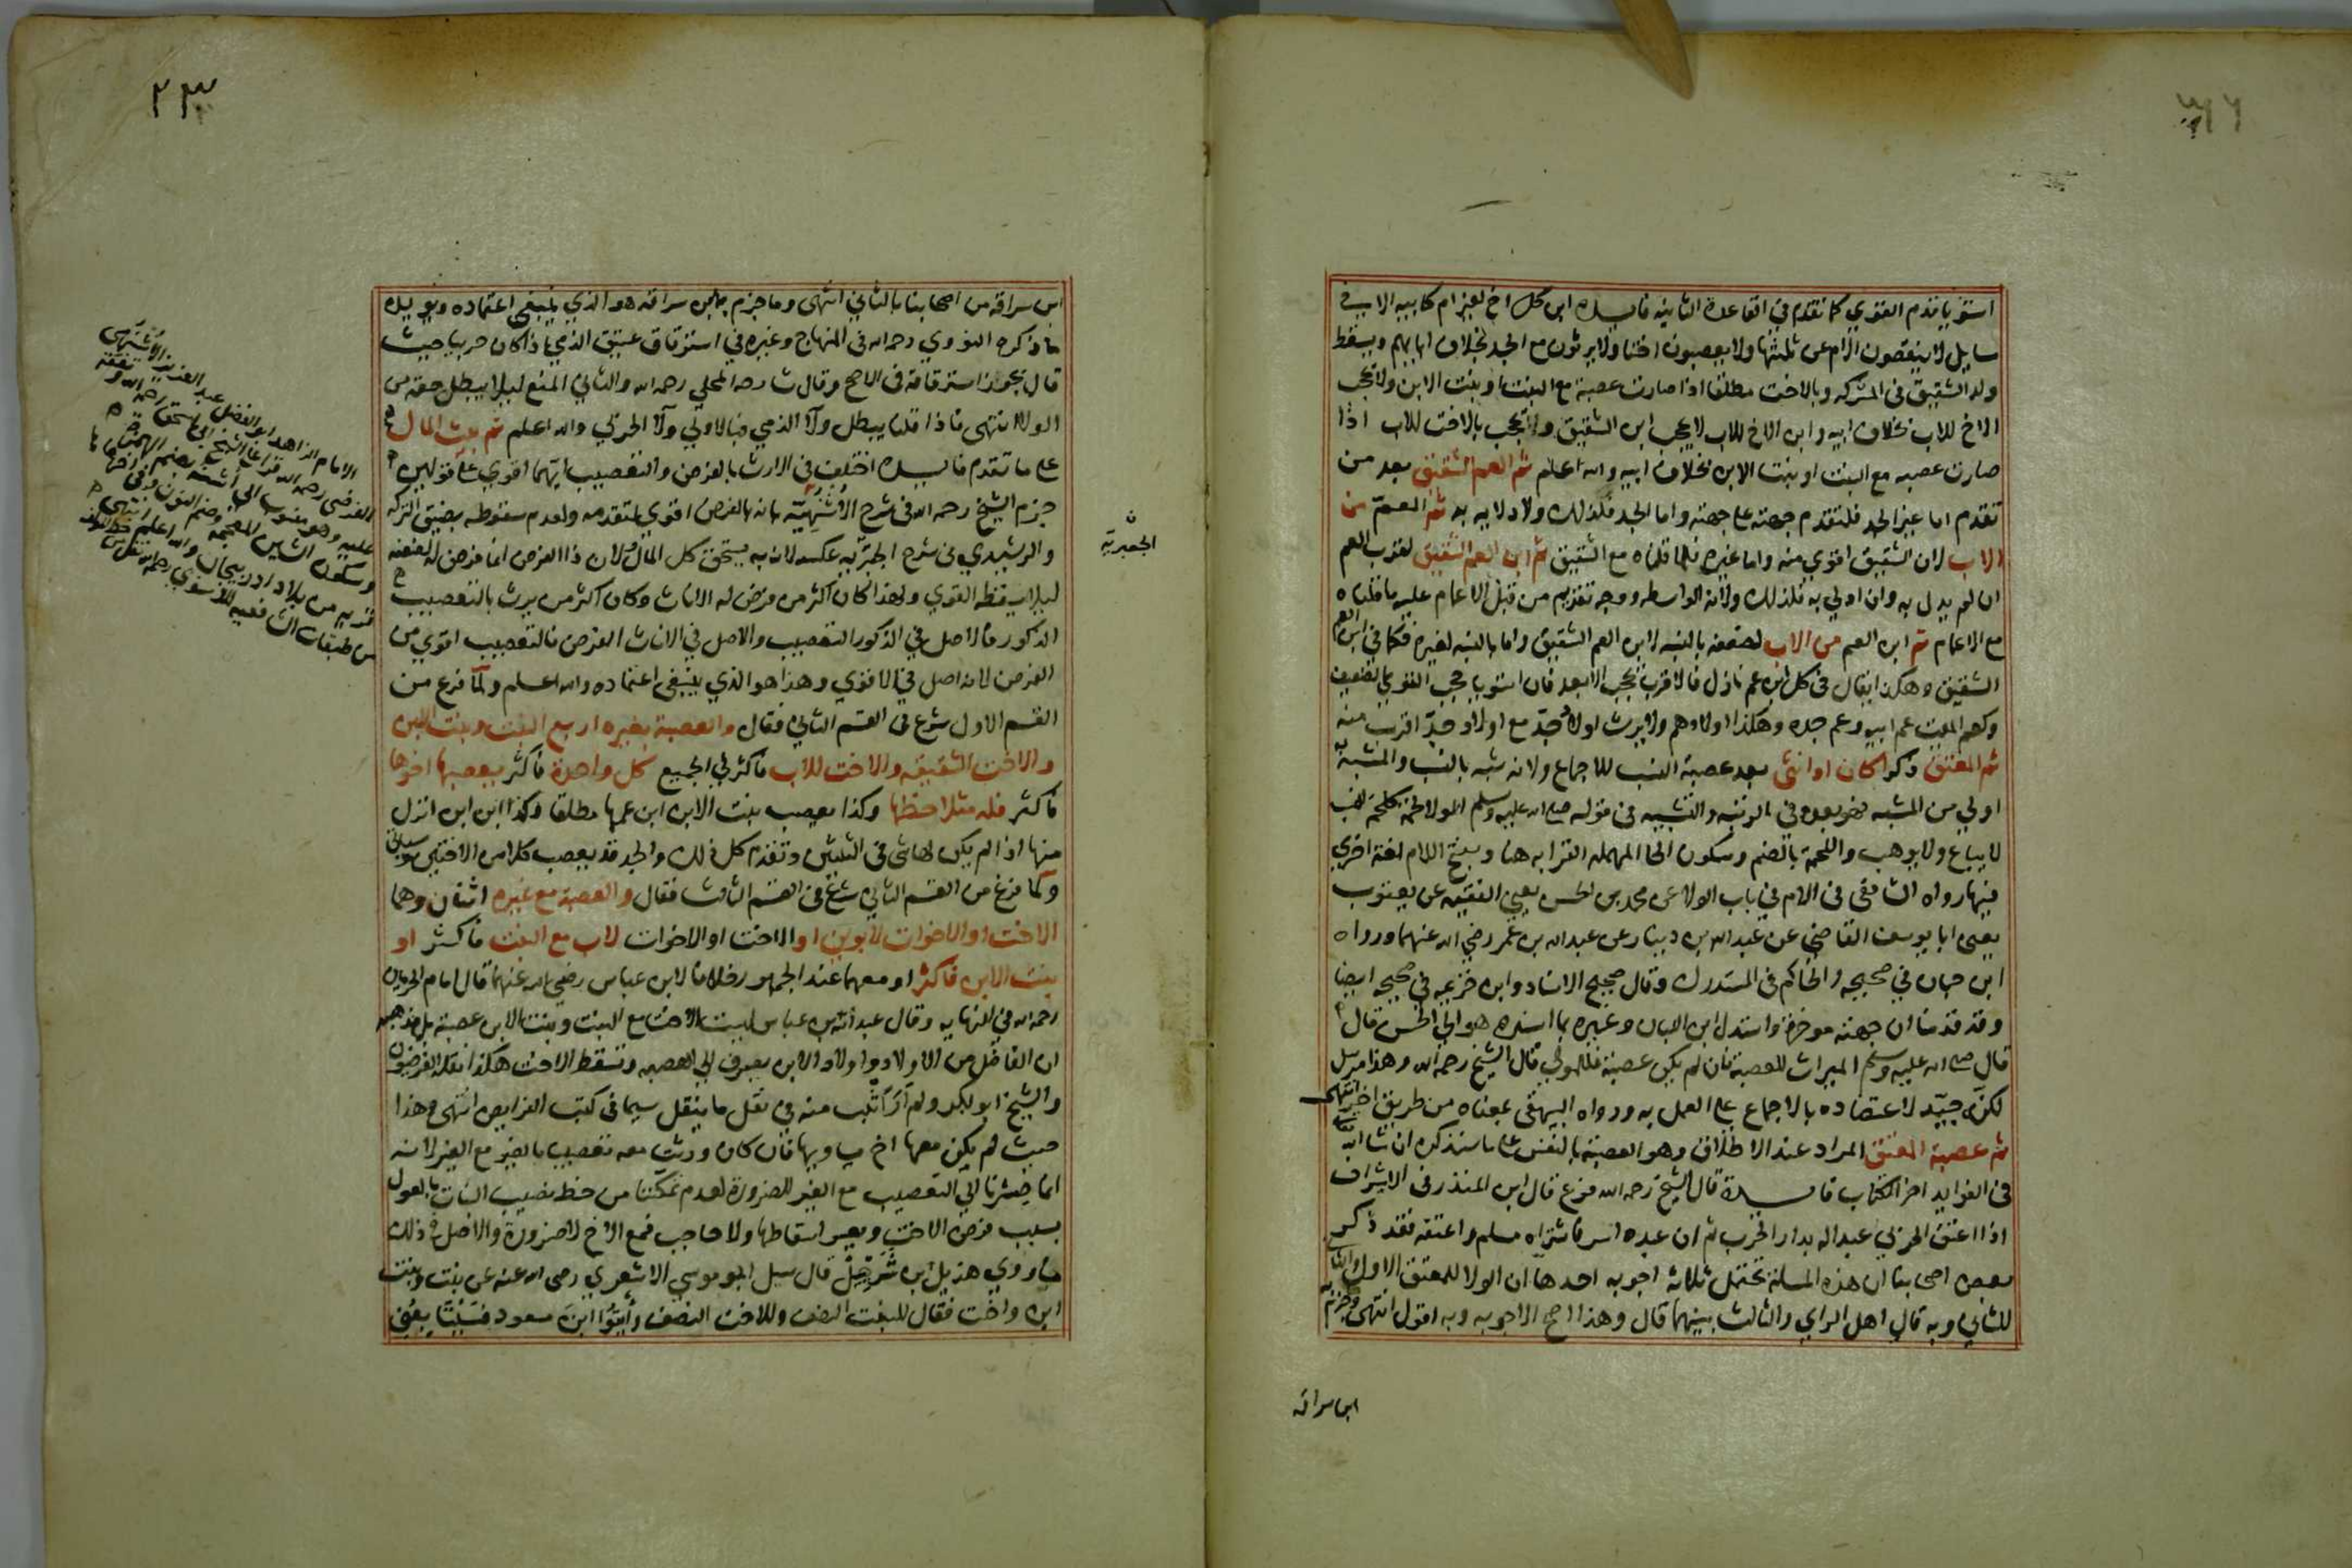 استويا قدم القوي كما تقدم في القاعدة الثانية فايدة ابن كل اخ لغير ام كابيه الا في
سايل لا ينقصون الام عن ثلثها ولا يعصبون اختا ولا يرثون مع الجد بخلاف ابايهم ويسقط
ولد الشقيق في المشركه وبالاخت مطلقا اذا صارت عصبة مع البنت او بنت الابن ولا يحجب
الاخ للاب بخلاف ابيه وابن الاخ للاب لا يحجب ابن الشقيق ولا يحجب بالاخت للاب اذا
صارت عصبه مع البنت او بنت الابن بخلاف ابيه والله اعلم ثم العم الشقيق بعد من
تقدم اما غير الجد فلتقدم جهته على جهته واما الجد فلذلك ولادلايه به ثم العم من
الاب لان الشقيق اقوي منه واما غيره فلما قلناه مع الشقيق ثم ابن العم الشقيق لقرب العم
ان لم يدل به وان ادلي به فلذلك ولانه الواسطه ووجه تقديم من قبل الاعمام عليه ما قلناه
مع الاعمام ثم ابن العم من الاب لضعفه بالنسبه لابن العم الشقيق واما بالنسبه لغيره فكما في ابن العم
الشقيق وهكذا يقال في كل ابن عم نازل فالاقرب يحجب الابعد فان استويا حجب القوي الضعيف
وكعم الميت عم ابيه وعم جده وهكذا اولادهم ولا يرث اولاد جد مع اولاد جد اقرب منه
ثم المعتق ذكرا كان او انثى بعد عصبة النسب للاجماع ولانه شبه بالنسب والمشبه به
اولي من المشبه فهو بعده في الرتبه والتشبيه في قوله صلى الله عليه وسلم الولا لحمة كلحمة النسب
لا يباع ولا يوهب واللحمة بالضم وسكون الحا المهمله القرابه هنا وبفتح اللام لغة اخري
فيها رواه الشافعي في الام في باب الولا عن محمد بن الحسن يعني الفقيه عن يعقوب
يعني ابا يوسف القاضي عن عبد الله بن دينار عن عبد الله بن عمر رضي الله عنهما ورواه
ابن حبان في صحيحه والحاكم في المستدرك وقال صحيح الاسناد وابن خزيمه في صحيحه ايضا
وقد قدمنا ان جهته موخرة واستدل ابن اللبان وغيره بما اسنده هو الي الحسن قال
قال صلى الله عليه وسلم الميراث للعصبة فان لم يكن عصبة فللمولي قال الشيخ رحمه الله وهذا مرسل
لكنه جيد لاعتضاده بالاجماع على العمل به ورواه البيهقي بمعناه من طريق اخر انتهى
ثم عصبة المعتق المراد عند الاطلاق وهو العصبة بالنفس على ما سنذكره ان شا الله
في الفوايد اخر الكتاب فايدة قال الشيخ رحمه الله فرع قال ابن المنذر في الاشراف
اذا اعتق الحربي عبدا له بدار الحرب ثم ان عبده اسر فاشتراه مسلم واعتقه فقد ذكر
بعض اصحابنا ان هذه المسئلة تحتمل ثلاثة اجوبه احدها ان الولا للمعتق الاول والثاني
للثاني وبه قال اهل الراي والثالث بينهما قال وهذا اصح الاجوبه وبه اقول انتهى وجزم به
ابن سراقه
٢٣
ابن سراقه من اصحابنا بالثاني انتهى وما جزم به ابن سراقه هو الذي ينبغي اعتماده ويويده
ما ذكره النووي رحمه الله في المنهاج وغيره في استرقاق عتيق الذمي اذا كان حربيا حيث
قال يجوز استرقاقه في الاصح وقال شارحه المحلي رحمه الله والثاني المنع ليلا يبطل حقه من
الولا انتهى فاذا قلنا يبطل ولا الذمي فبالاولي ولا الحربي والله اعلم ثم بيت المال
على ما تقدم فايدة اختلف في الارث بالفرض والتعصيب ايهما اقوي على قولين
جزم الشيخ رحمه الله في شرح الاشنهية بانه بالفرض اقوي لتقدمه ولعدم سقوطه بضيق التركه
والرشيدي في شرح الجعبريه عكسه لانه به يستحق كل المال ولان ذا الفرض انما فرض له لضعفه
ليلا يسقطه القوي ولهذا كان اكثر من فرض له الاناث وكان اكثر من يرث بالتعصيب
الذكور فالاصل في الذكور التعصيب والاصل في الاناث الفرض فالتعصيب اقوي من
الفرض لانه اصل في الاقوي وهذا هو الذي ينبغي اعتماده والله اعلم ولما فرع من
القسم الاول شرع في القسم الثاني فقال والعصبة بغيره اربع البنت وبنت الابن
والاخت الشقيقه والاخت للاب فاكثر في الجميع كل واحدة فاكثر يعصبها اخوها
فاكثر فله مثلا حظها وكذا يعصب بنت الابن ابن عمها مطلقا وكذا ابن ابن انزل
منها اذا لم يكن لها شي في الثلثين وتقدم كل ذلك والجد قد يعصب كلا من الاختين كما سياتي
ولما فرغ من القسم الثاني شرع في القسم الثالث فقال والعصبة مع غيره اثنان وهما
الاخت او الاخوات لابوين او الاخت او الاخوات لاب مع البنت فاكثر او
بنت الابن فاكثر او معهما عند الجمهور خلافا لابن عباس رضي الله عنهما قال امام الحرمين
رحمه الله في النهايه وقال عبد الله بن عباس ليست الاخت مع البنت وبنت الابن عصبة بل مذهبه
ان الفاضل من الاولاد واولاد الابن يصرف الي العصبه وتسقط الاخت هكذا نقله الفرضيون
والشيخ ابو بكر ولم ار اثبت منه في نقل ما ينقل سيما في كتب الفرايض انتهى وهذا
حيث لم يكن معها اخ يساويها فان كان ورثت معه تعصيبا بالغير مع الغير لانه
انما صرنا الي التعصيب مع الغير للضرورة لعدم تمكننا من حط نصيب البنات بالعول
بسبب فرض الاخت ويعسر اسقاطها ولا حاجب فمع الاخ لا ضرورة والاصل في ذلك
ما روي هذيل ابن شرحبيل قال سيل ابو موسي الاشعري رضي الله عنه عن بنت وبنت
ابن واخت فقال للبنت النصف وللاخت النصف وأتوا ابن مسعود
الجعبرية
الامام الزاهد ابو الفضل عبد العزيز الاشنهي
الفرضي رحمه الله قرا على الشيخ ابي اسحق
وسكون الشين المعجمه وضم النون
قريه من بلاد اذربيجان والله اعلم
من طبقات الشافعيه للاسنوي رحمه الله